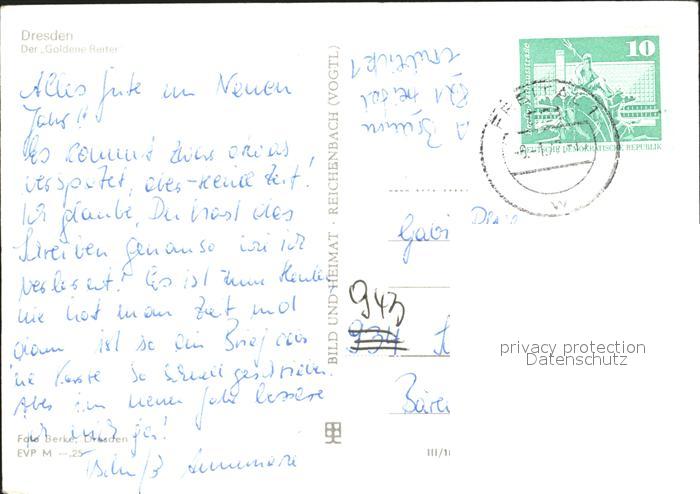 Dresden
Der „Goldene Reiter"
Alles Gute im Neuen
Jahr!!
Es kommt zwar etwas
verspätet, aber keine Zeit.
Ich glaube, Du hast das
Schreiben genauso wie ich
verlernt! Es ist zum Heulen
nie hat man Zeit und
dann ist so ein Brief oder
'ne Karte so schnell geschrieben.
Aber im neuen Jahr bessere
ich mich ja!
Tschüß Annemarie
Foto Berke, Dresden
EVP M —,25
BILD UND HEIMAT · REICHENBACH (VOGTL)
III/1
10
DEUTSCHE DEMOKRATISCHE REPUBLIK
FREITAL 1
w
Gabi
943
934
Bären
privacy protection
Datenschutz